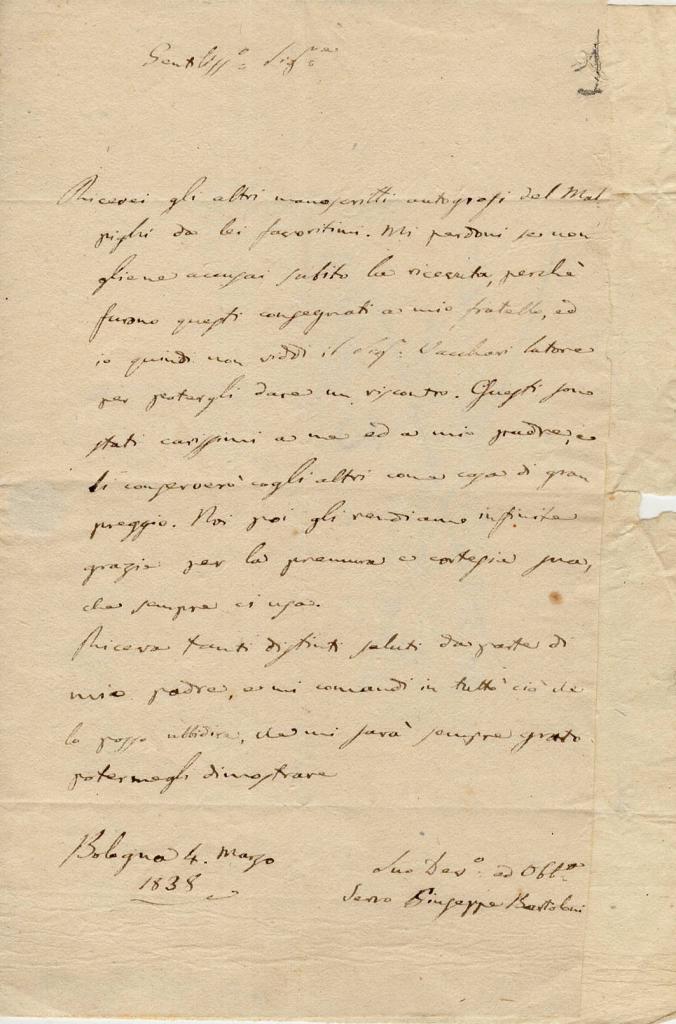 Gentiliss.o Sig.re
Ricevei gli altri manoscritti autografi del Mal
pighi da lei favoritimi. Mi perdoni se non
gliene accusai subito la ricevuta, perchè
furono questi consegnati a mio fratello, ed
io quindi non viddi il Sig.r Vaccheri latore
per potergli dare un riscontro. Questi sono
stati carissimi a me ed a mio padre, e
li conserverò cogli altri come cosa di gran
preggio. Noi poi gli rendiamo infinite
grazie per la premura e cortesia sua,
che sempre ci usa.
Riceva tanti distinti saluti da parte di
mio padre, e mi comandi in tutto ciò che
la posso ubbidire, che mi sarà sempre grato
potermegli dimostrare
Bologna 4. Marzo
1838
Suo Dev.o ed Obb.o
Servo Giuseppe Bertoloni